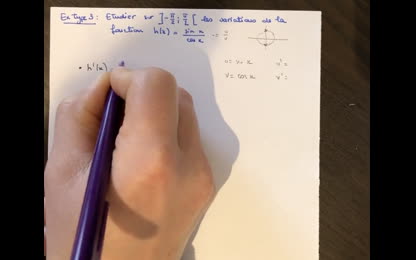 Ex Type 3 : Etudier sur ]-π/2 ; π/2[ les variations de la
fonction h(x) = sin x / cos x = u/v
u = sin x u' =
• h'(x) =
v = cos x v' =